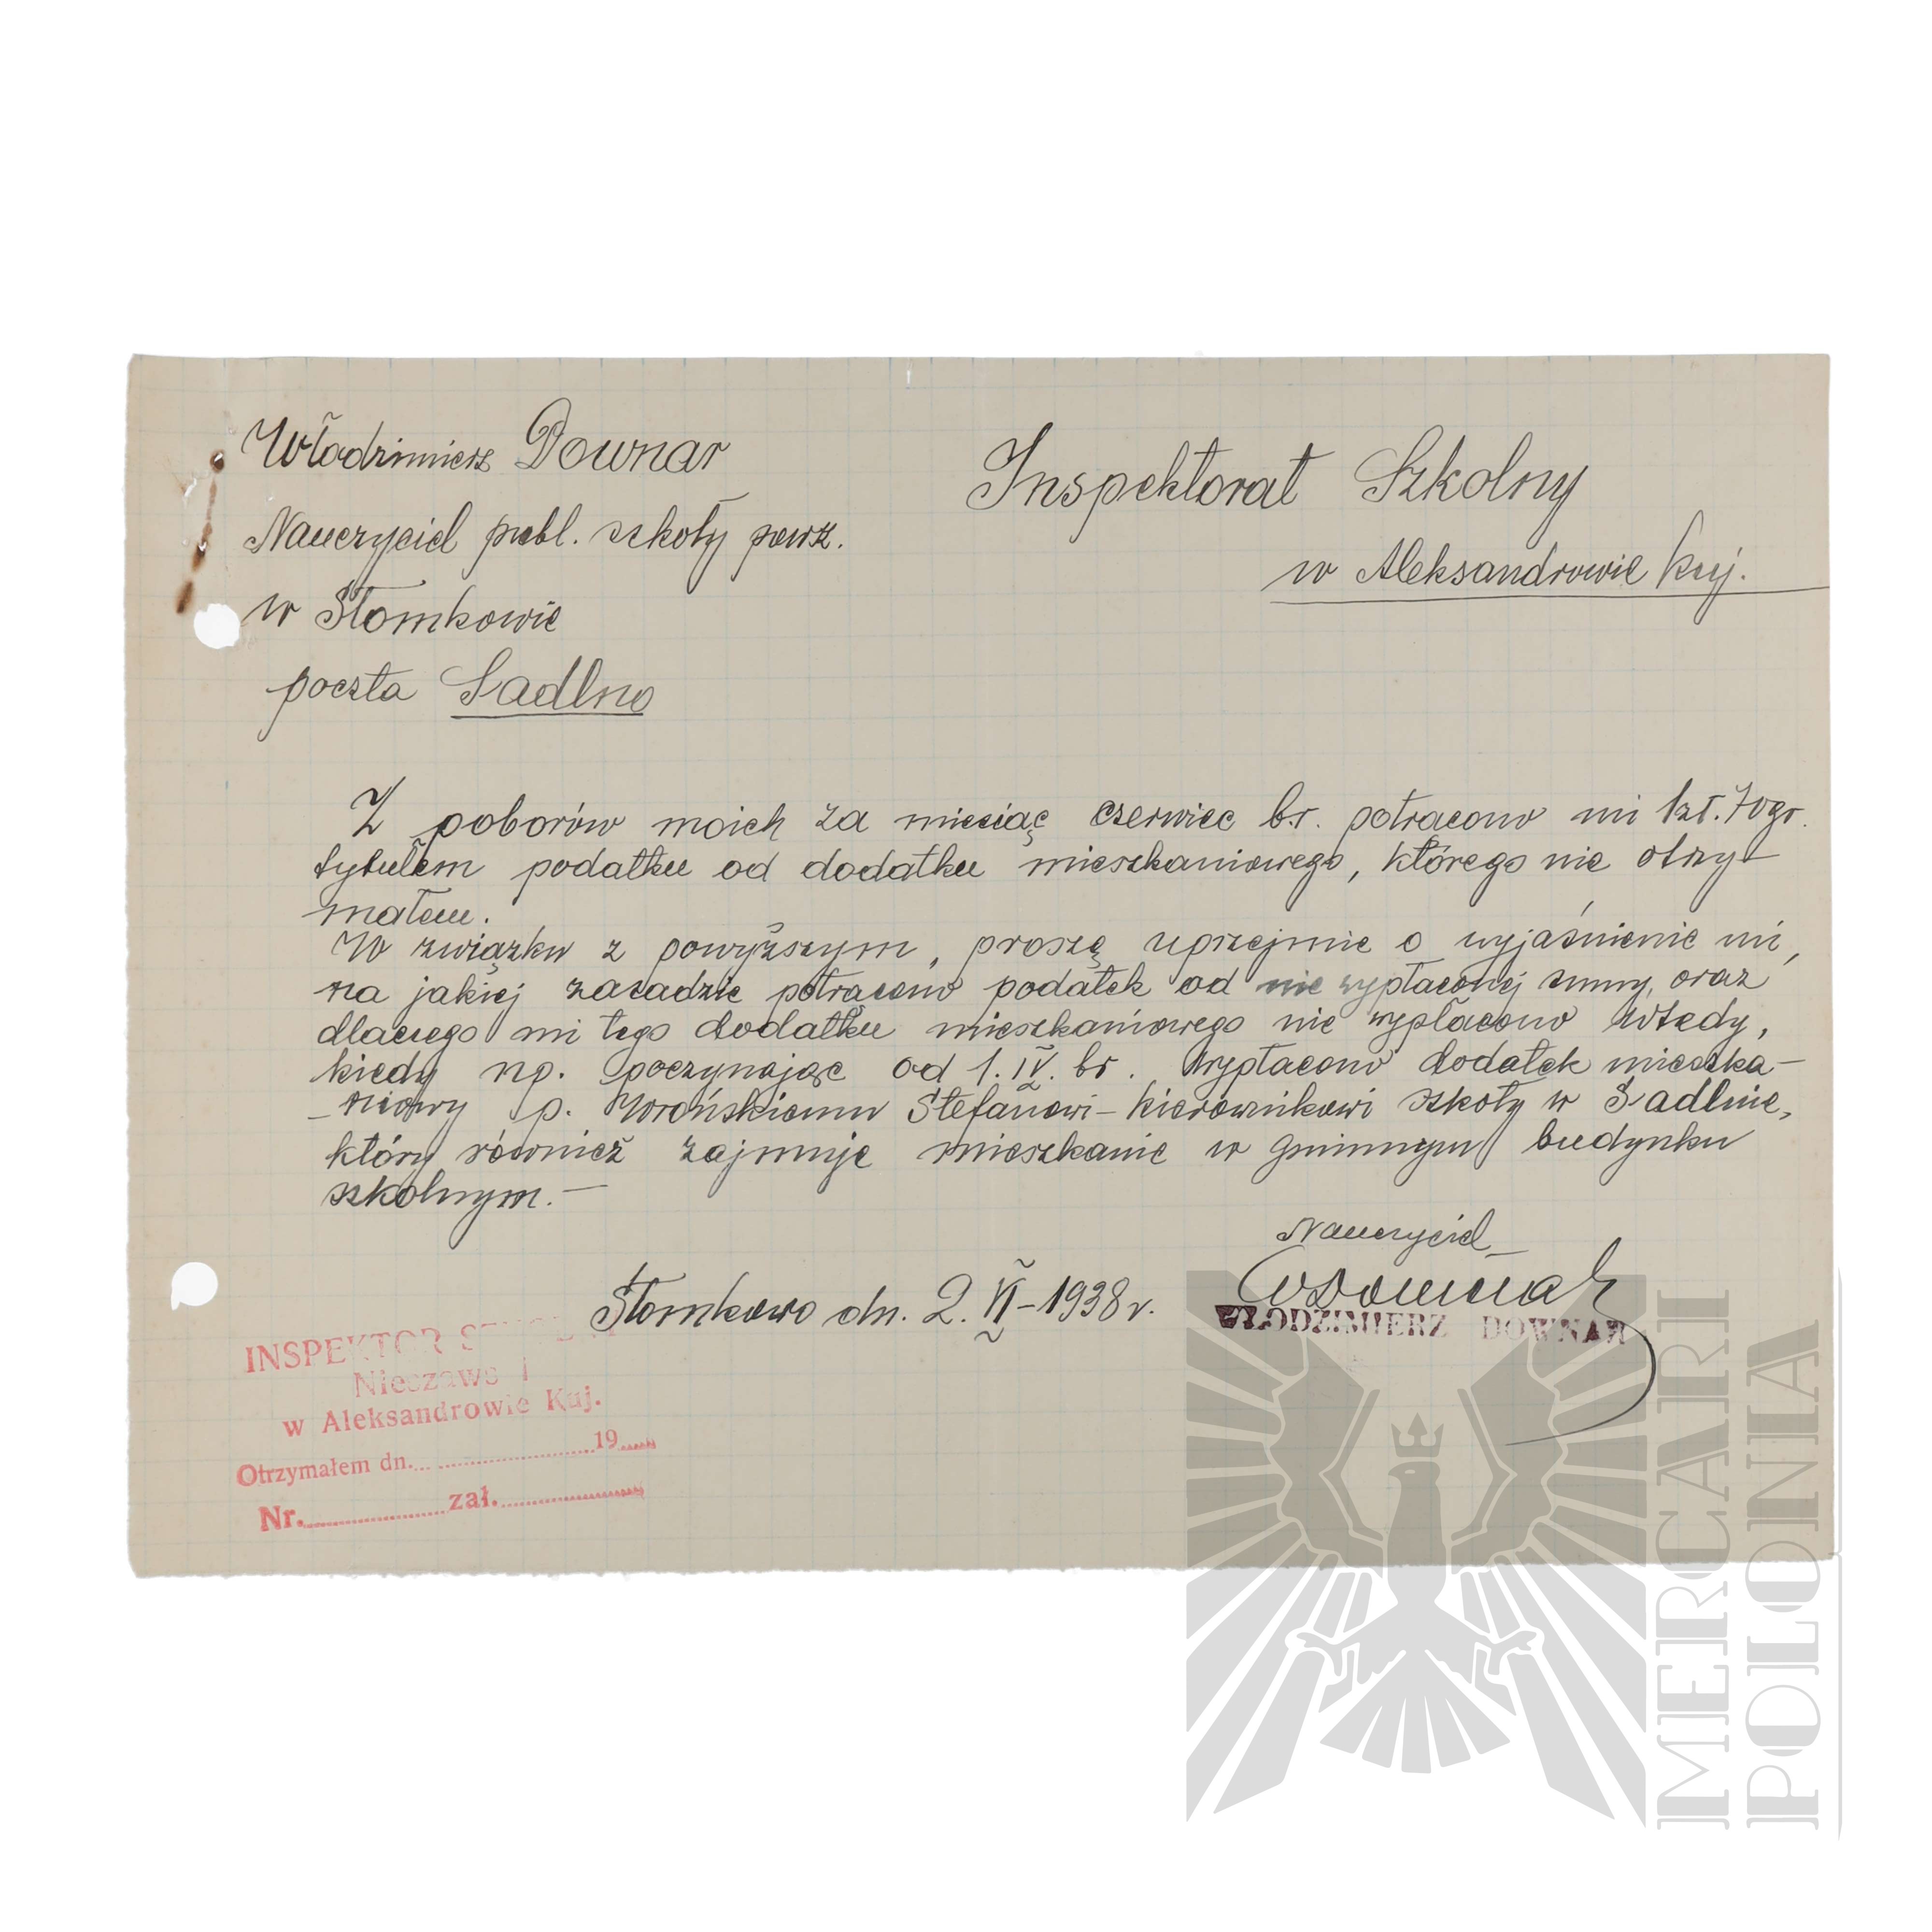 Włodzimierz Downar
Nauczyciel publ. szkoły powsz.
w Słomkowie
poczta Sadlno
Inspektorat Szkolny
w Aleksandrowie Kuj.
Z poborów moich za miesiąc czerwiec b.r. potrącono mi 1 zł. 70 gr.
tytułem podatku od dodatku mieszkaniowego, którego nie otrzy-
małem.
W związku z powyższym, proszę uprzejmie o wyjaśnienie mi,
na jakiej zasadzie potrącono podatek od nie wypłaconej sumy, oraz
dlaczego mi tego dodatku mieszkaniowego nie wypłacono wtedy,
kiedy np. poczynając od 1. IV. br. wypłacono dodatek mieszka-
-niowy p. Stefanowi - kierownikowi szkoły w Sadlnie,
który również zajmuje mieszkanie w gminnym budynku
szkolnym.-
Nauczyciel
Słomkowo dn. 2. VI - 1938 r.
WDownar
WŁODZIMIERZ DOWNAR
INSPEKTOR
Nieszawski
w Aleksandrowie Kuj.
Otrzymałem dn.............19....
Nr...............zał...............
MERCARI
POLONIA